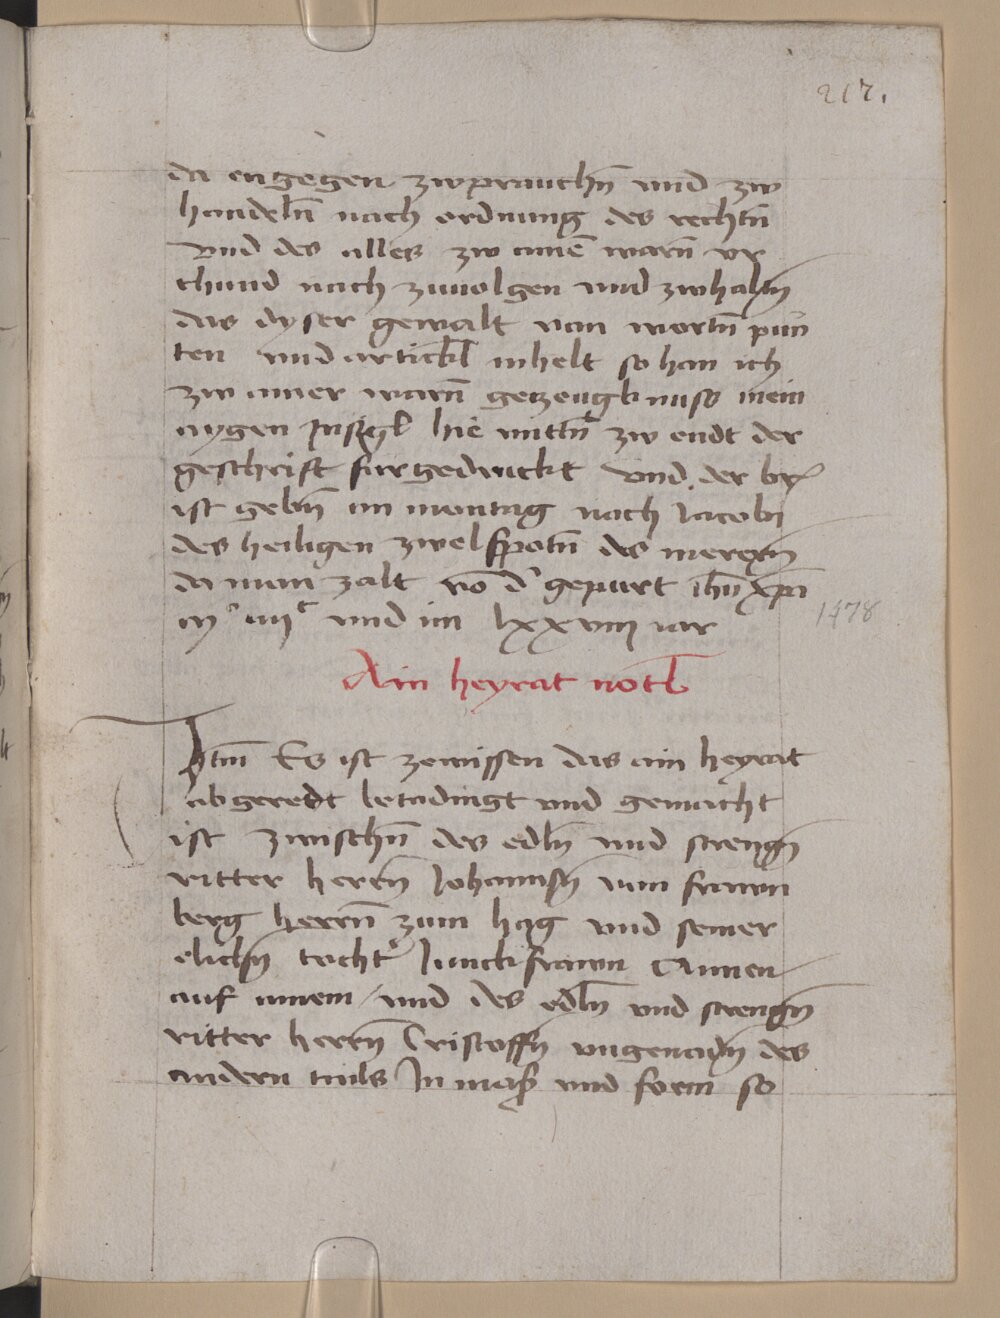 217.
da engegen zwprauchn̄ und zw
handeln̄ nach ordnung des rechtn̄
vnd des alles zw ainē warn̄ vr
chund nach zuuolgen und zwhaltn̄
das dyser gewalt van wortn̄ pūn
ten und artickl inhelt so han ich
zw ainer warn̄ getzeugknuss mein
aygen Insigl hie mittn̄ zw endt der
geschrift fürgedruckt vnd der br
ist gebn̄ im montag nach Jacobi
des heiligen zwelfpotn̄ des merern̄
da man zalt vō d' gepurt ihū xp̄i
mͦ iiijͨ und im lxxviij iar
1478
Ain heyrat notl
Itm̄ Es ist zewissen das ain heyrat
abgeredt betadingt und gemacht
ist zwischn̄ des edln̄ und strengn̄
ritter herrn̄ Johannsn̄ vom frawn
berg herrn̄ zum hag und seiner
elichn̄ tocht' Junckfrawn Annen
auf ainem / und des edln̄ und strengn̄
ritter herrn̄ Cristoffn̄ vngenadn̄ des
andern tails In mass und form so